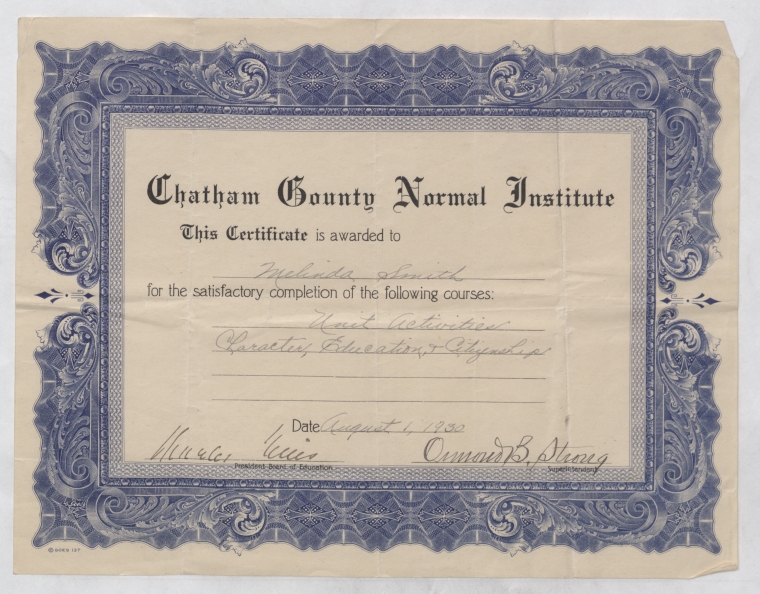 Chatham County Normal Institute
This Certificate is awarded to
Melinda Smith
for the satisfactory completion of the following courses:
Unit Activities
Character, Education, & Citizenship
Date August 1, 1930
Ormond B. Strong
President Board of Education
Superintendent
© GOES 137